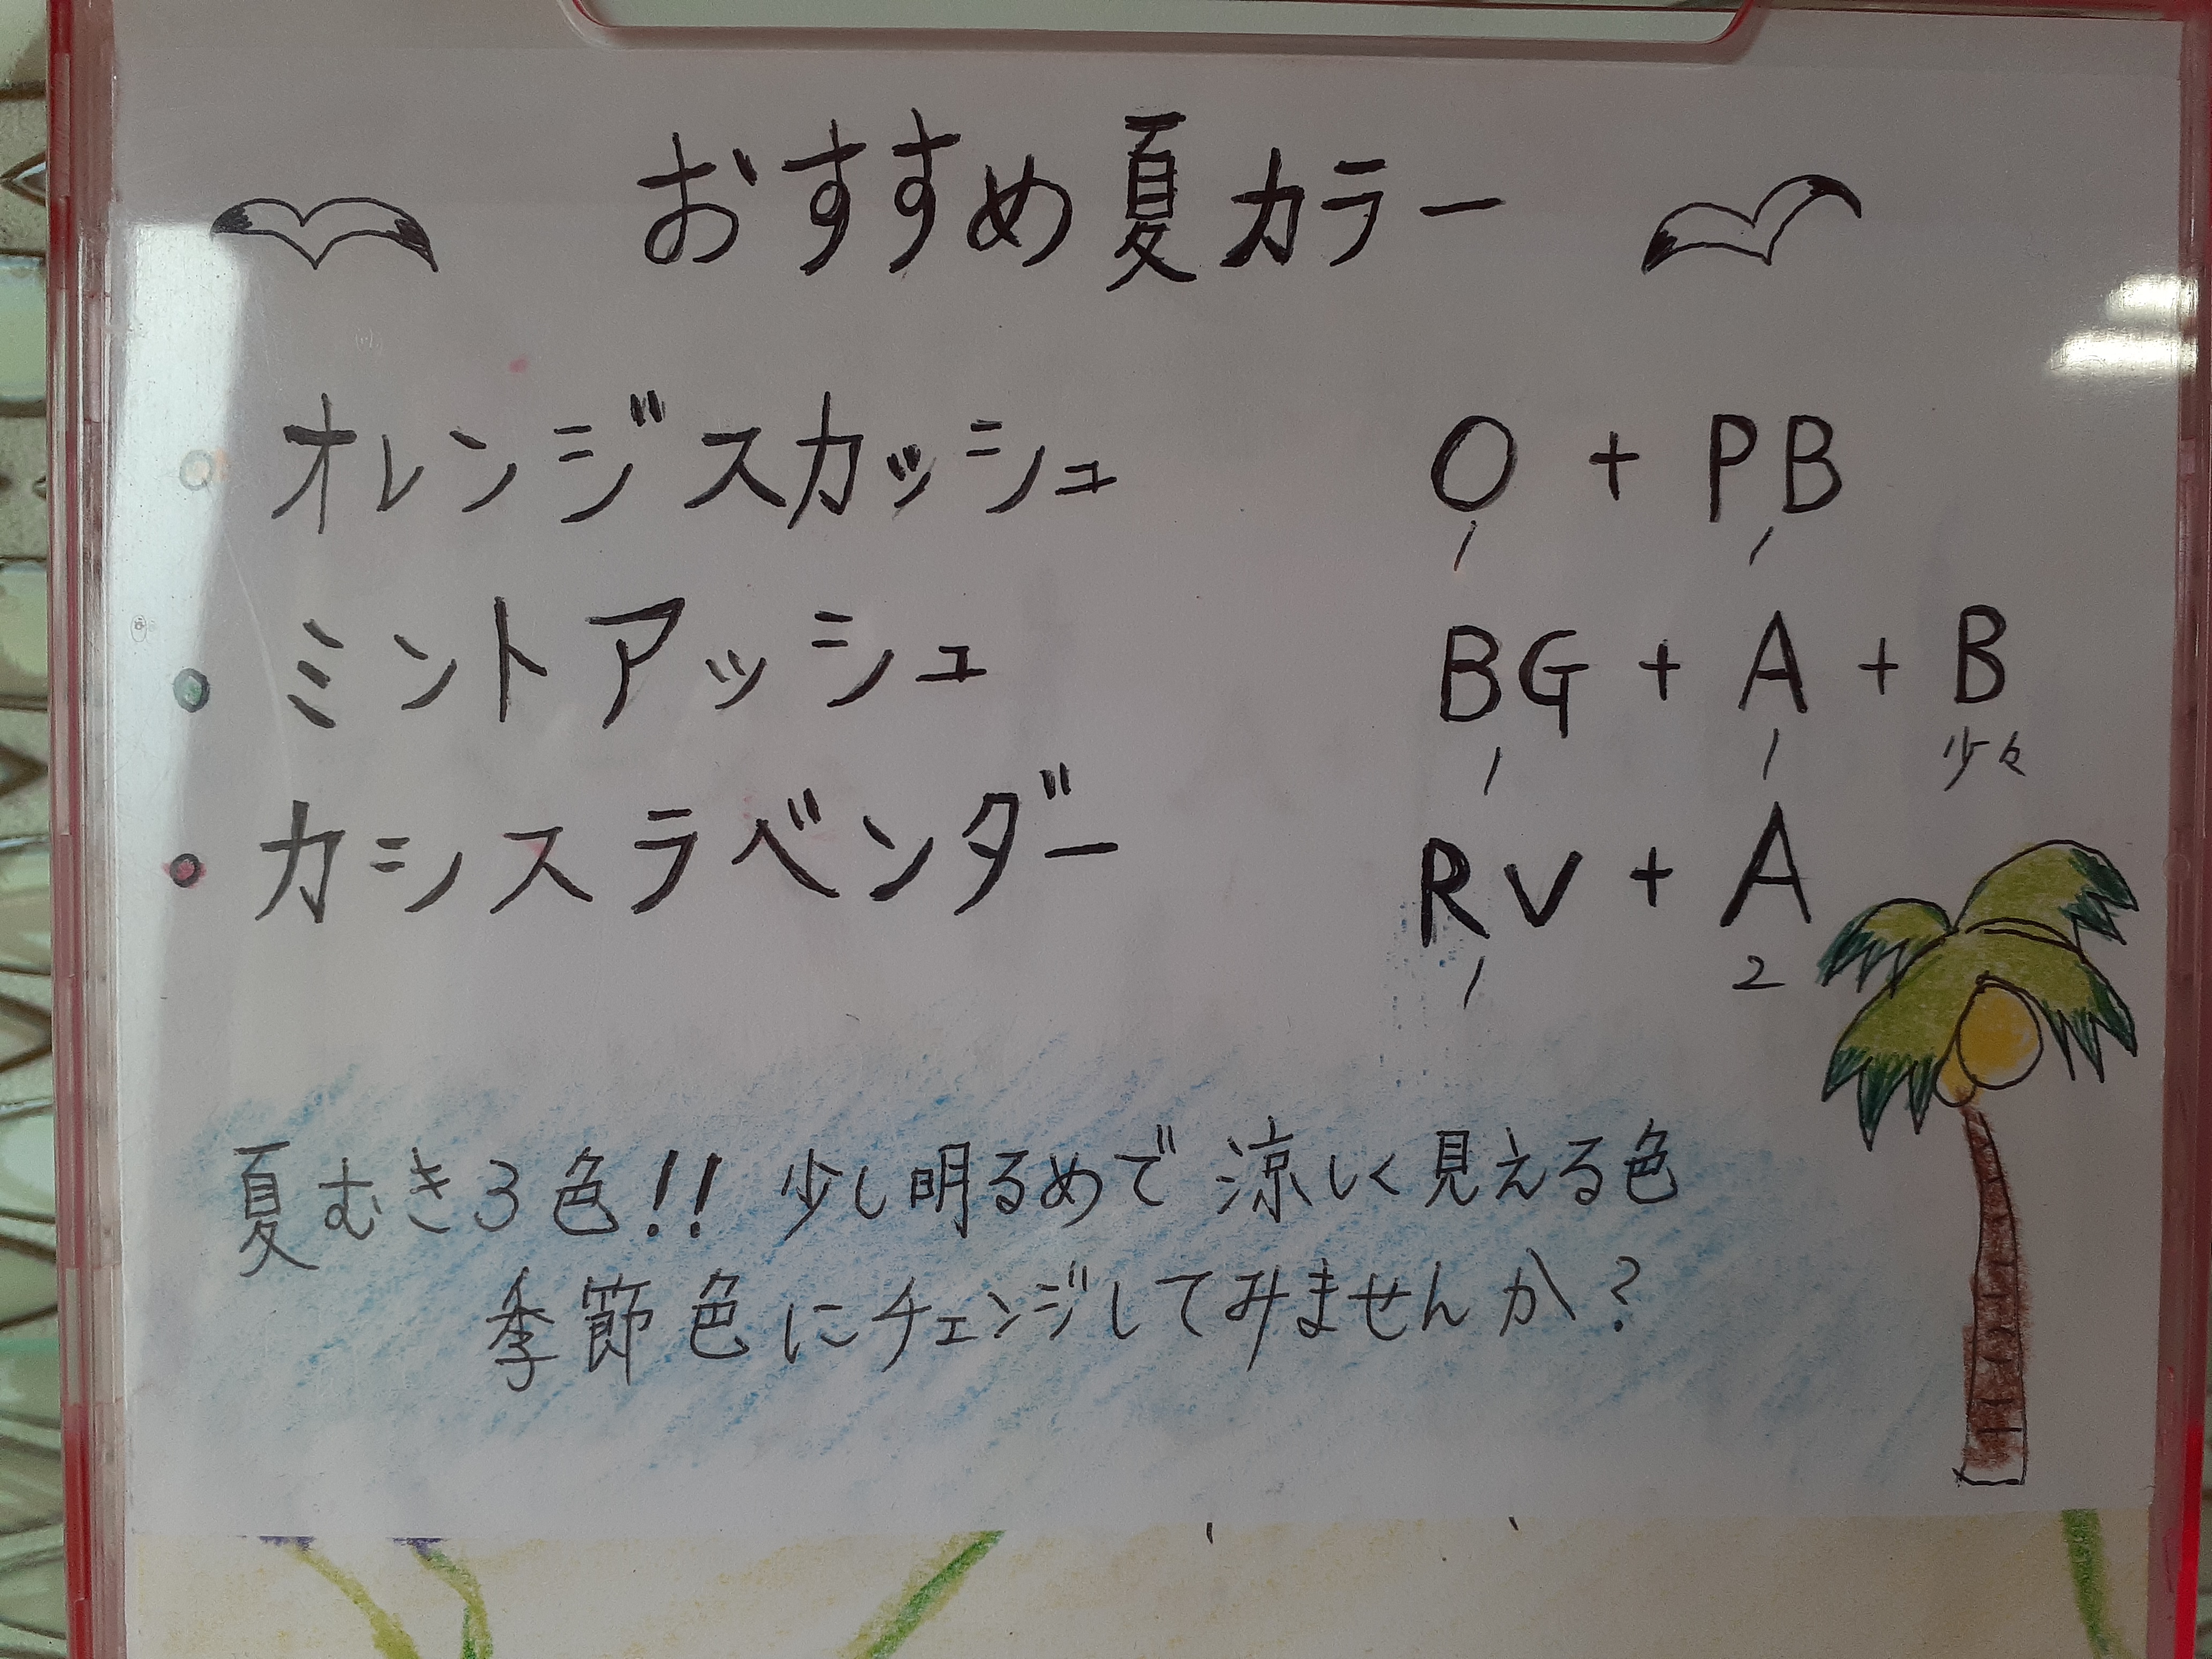 おすすめ夏カラー
・オレンジスカッシュ O + PB
1 1
・ミントアッシュ BG + A + B
1 1 少々
・カシスラベンダー RV + A
1 2
夏むき3色!! 少し明るめで涼しく見える色
季節色にチェンジしてみませんか?